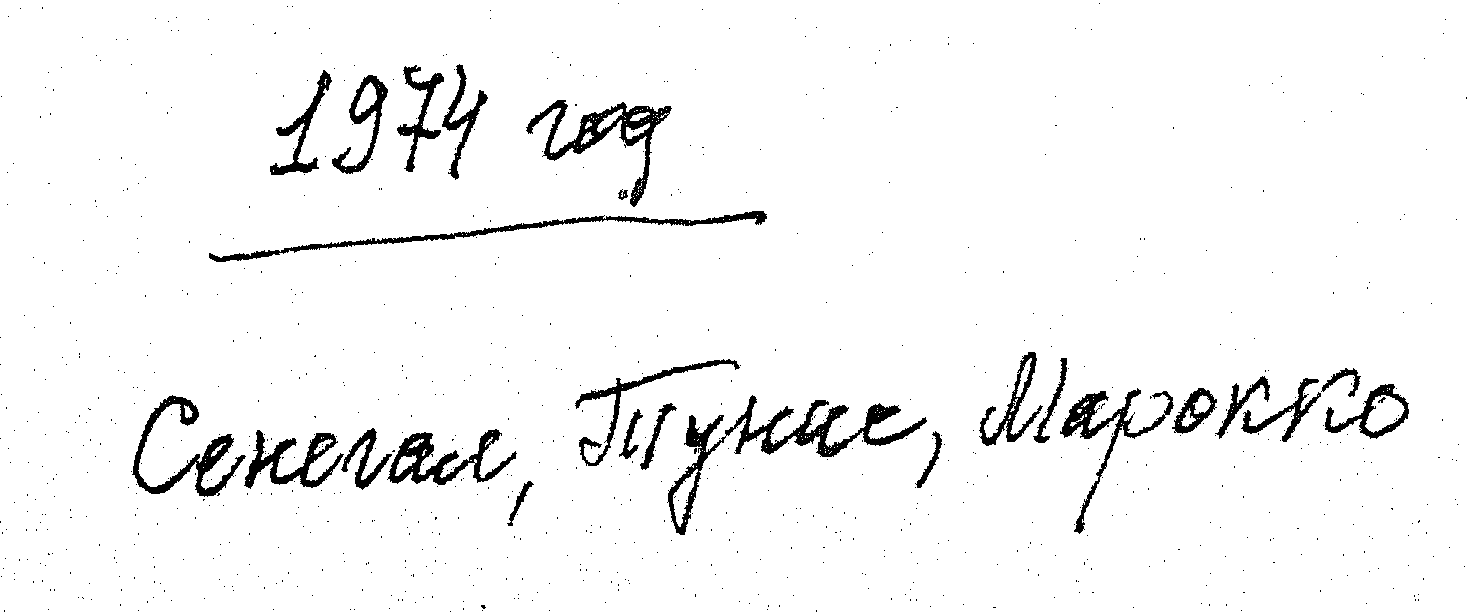 1974 год
Сенегал, Тунис, Марокко